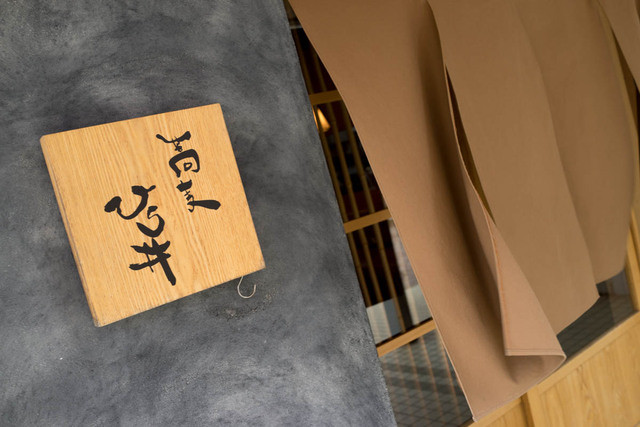 蕎麦
ひら井